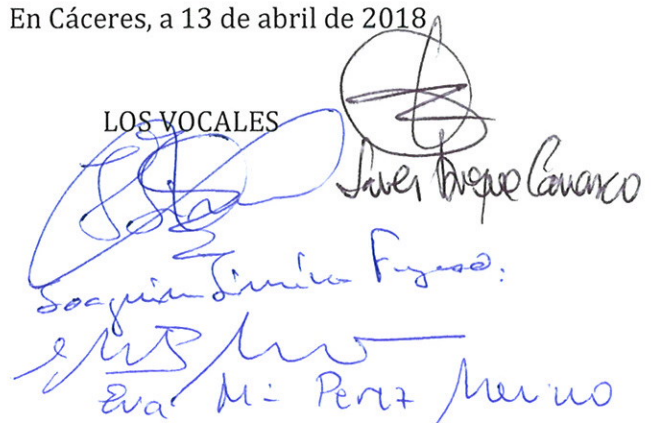 En Cáceres, a 13 de abril de 2018
LOS VOCALES
Javier Duque Carrasco
Joaquín
Eva Mª Perez Merino